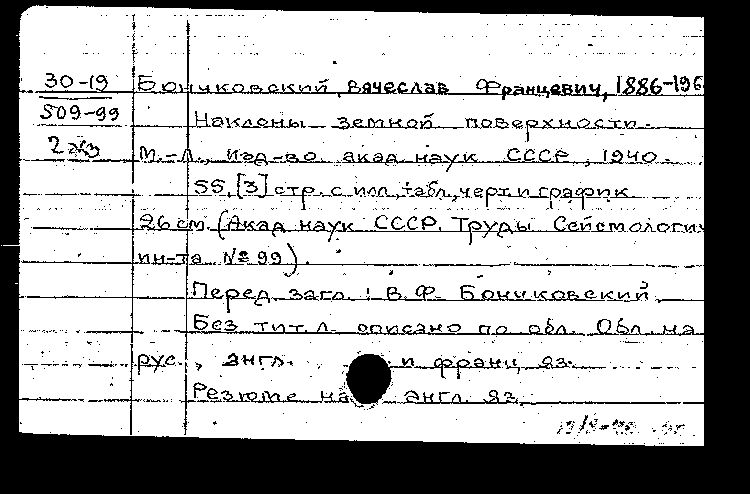 30-19 Бончковский, Вячеслав Францевич, 1886-196
509-99 Наклоны земной поверхности.
2 экз М.-Л., Изд-во акад наук СССР, 1940.
55, [3] стр. с илл, табл, черт и график
26 см. (Акад наук СССР. Труды Сейсмологич
ин-та № 99).
Перед загл.: В.Ф. Бончковский.
Без тит. л. описано по обл. Обл на
рус., англ. и франц яз.
Резюме на англ. яз.